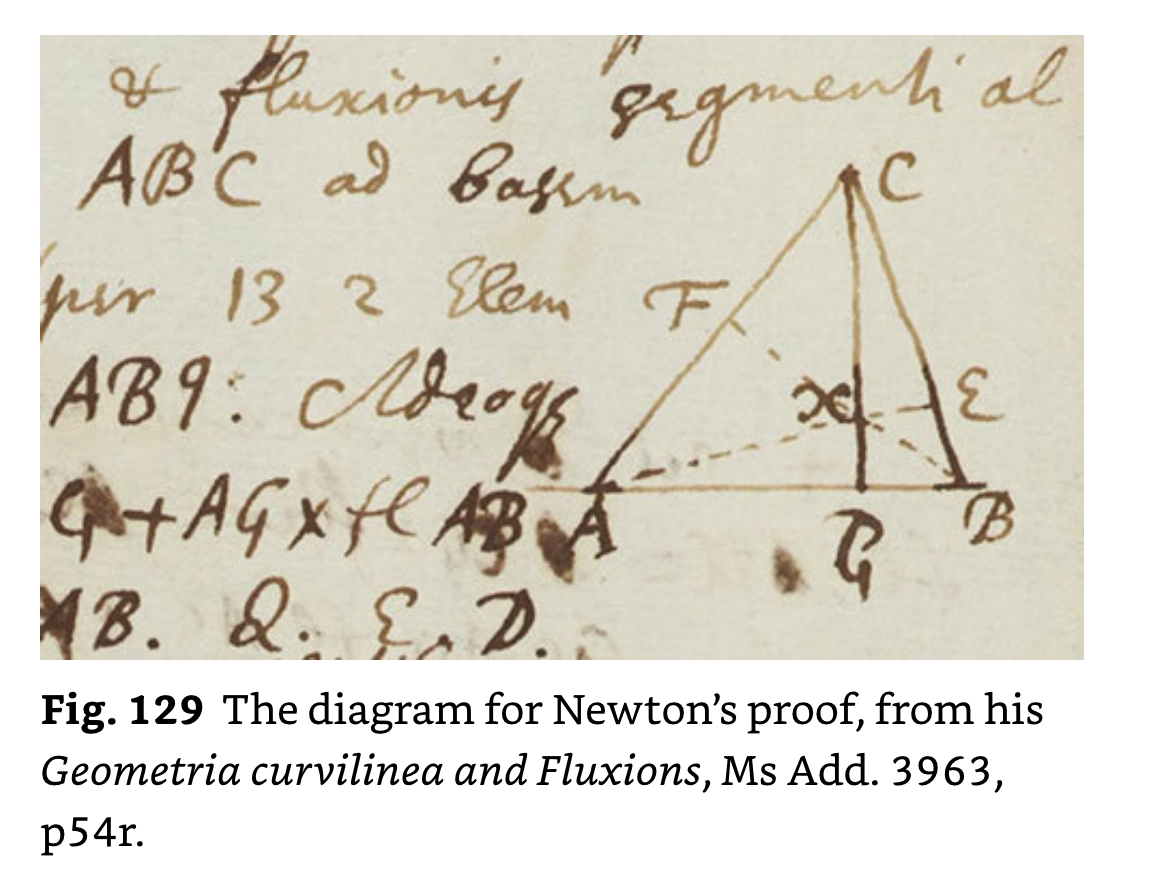 & fluxionis segmenti al
ABC ad basem
per 13 2 Elem
ABq: Adeoqꝫ
G + AG x fl AB
AB. Q. E. D.
C
F
x
E
A
G
B
Fig. 129 The diagram for Newton’s proof, from his
Geometria curvilinea and Fluxions, Ms Add. 3963,
p54r.